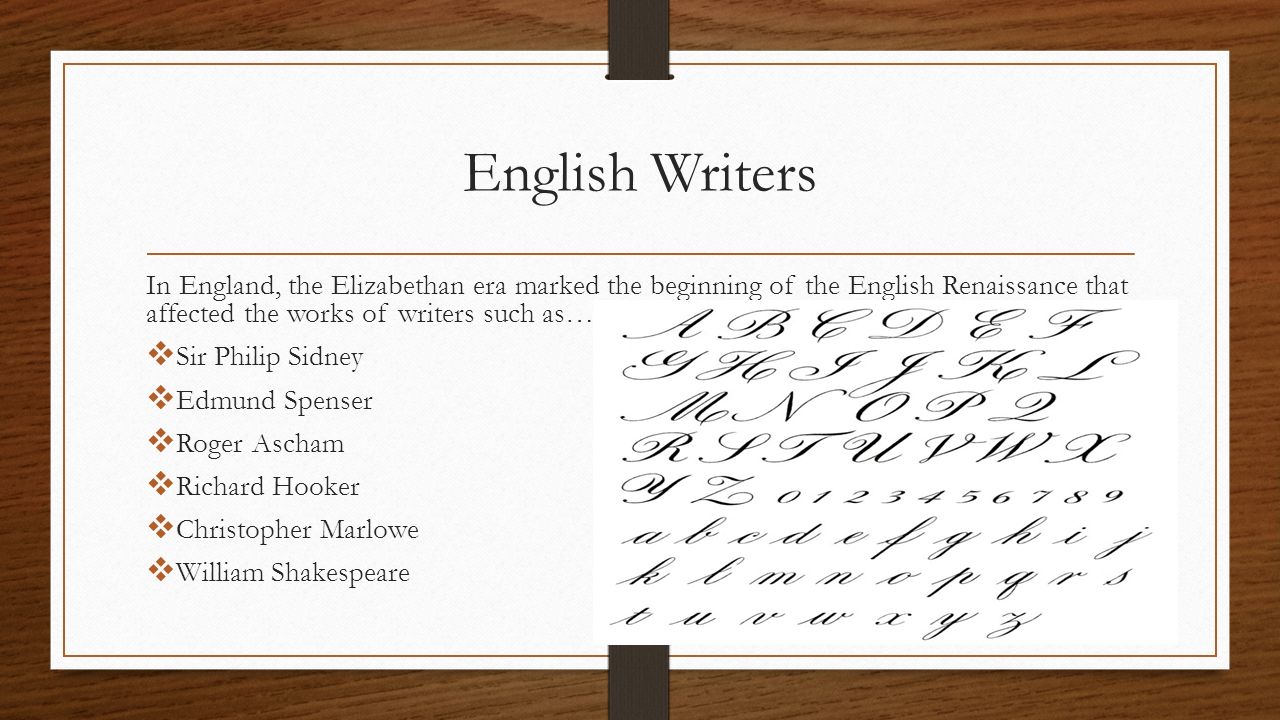 English Writers
In England, the Elizabethan era marked the beginning of the English Renaissance that
affected the works of writers such as…
❖ Sir Philip Sidney
❖ Edmund Spenser
❖ Roger Ascham
❖ Richard Hooker
❖ Christopher Marlowe
❖ William Shakespeare
A B C D E F
G H I J K L
M N O P Q
R S T U V W X
Y Z 0 1 2 3 4 5 6 7 8 9
a b c d e f g h i j
k l m n o p q r s
t u v w x y z